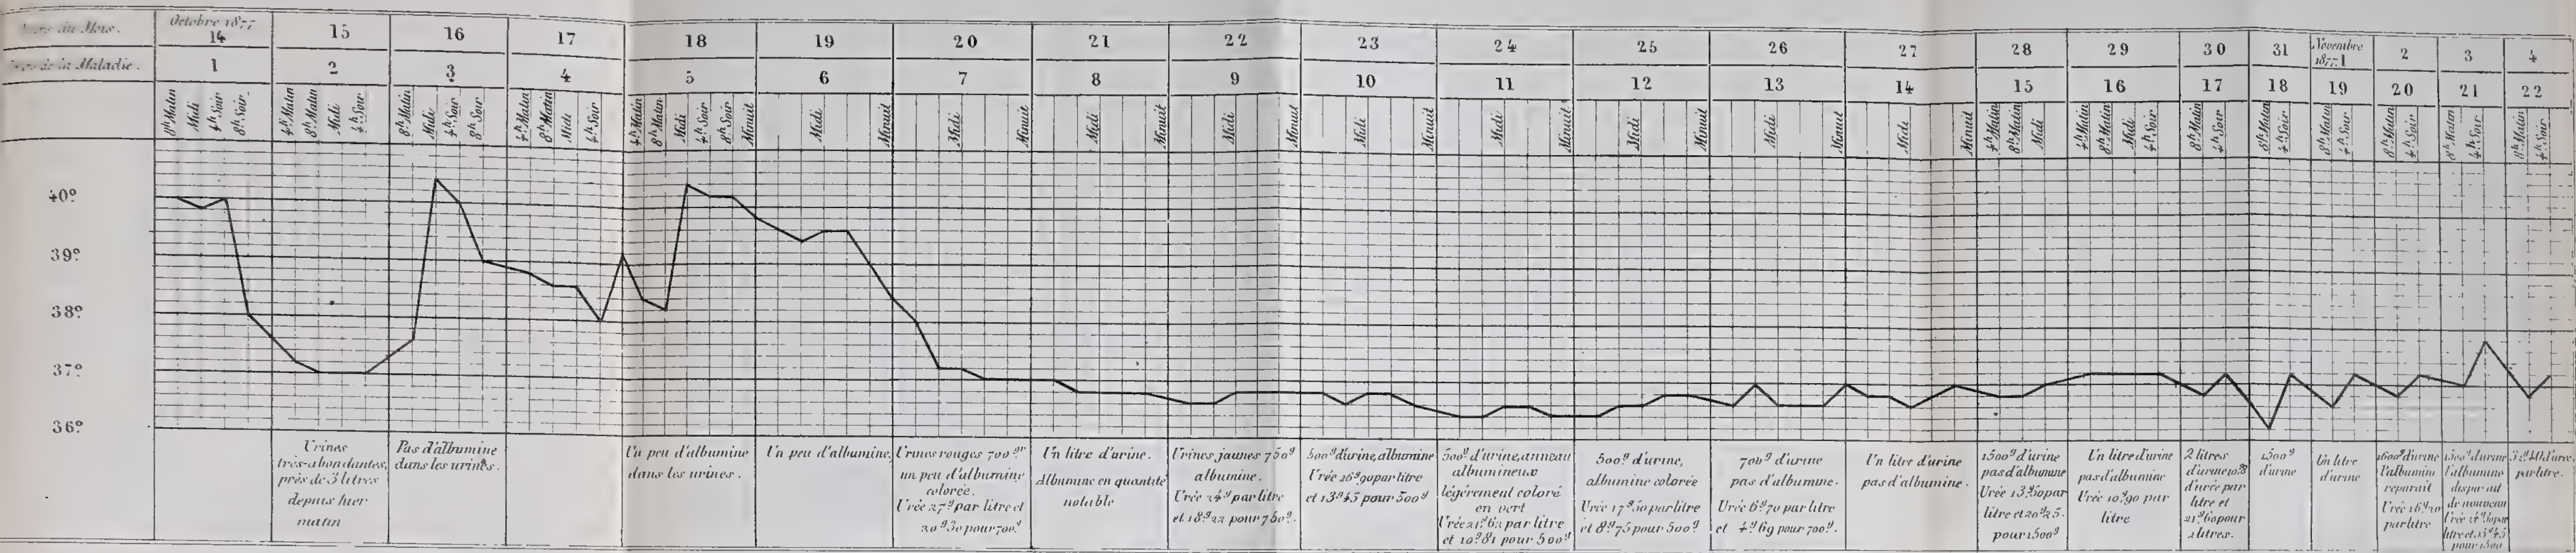 du Mois.
Octobre 1877
14 15 16 17 18 19 20 21 22 23 24 25 26 27 28 29 30 31 Novembre 1877 1 2 3 4
de la Maladie.
1 2 3 4 5 6 7 8 9 10 11 12 13 14 15 16 17 18 19 20 21 22
8h Matin Midi 4h Soir 8h Soir
4h Matin 8h Matin Midi 4h Soir
8h Matin Midi 4h Soir 8h Soir
4h Matin 8h Matin Midi 4h Soir
4h Matin 8h Matin Midi 4h Soir 8h Soir Minuit
Midi Minuit
Midi Minuit
Midi Minuit
Midi Minuit
Midi Minuit
Midi Minuit
Midi Minuit
Midi Minuit
Midi Minuit
4h Matin 8h Matin Midi
4h Matin 8h Matin Midi 4h Soir
8h Matin 4h Soir
8h Matin 4h Soir
8h Matin 4h Soir
8h Matin 4h Soir
8h Matin 4h Soir
8h Matin 4h Soir
40º
39º
38º
37º
36º
Urines
très-abondantes,
près de 3 litres
depuis hier
matin
Pas d'albumine
dans les urines.
Un peu d'albumine
dans les urines.
Un peu d'albumine,
Urines rouges 700gr
un peu d'albumine
colorée.
Urée 27g par litre et
pour 700g
Un litre d'urine.
Albumine en quantité
notable
Urines jaunes 750g
albumine.
Urée 24g par litre
et 18g22 pour 750g.
500g d'urine, albumine
Urée 26g90 par litre
et 13g45 pour 500g
500g d'urine, anneau
albumineux
légérement coloré
en vert
Urée 21g62 par litre
et 10g81 pour 500g
500g d'urine,
albumine colorée
Urée 17g50 par litre
et 8g75 pour 500g
700g d'urine
pas d'albumine.
Urée 6g70 par litre
et 4g69 pour 700g.
Un litre d'urine
pas d'albumine.
1500g d'urine
pas d'albumine
Urée 13g50 par
litre et 20g25.
pour 1500g
Un litre d'urine
pas d'albumine
Urée 10g90 par
litre
2 litres
d'urine
d'urée par
litre et
21g60 pour
2 litres.
1500g
d'urine
Un litre
d'urine
1600g d'urine
l'albumine
reparait
Urée
par litre
d'urine
l'albumine
disparait
de nouveau
Urée par
litre et
pour 1500
d'urée
par litre.